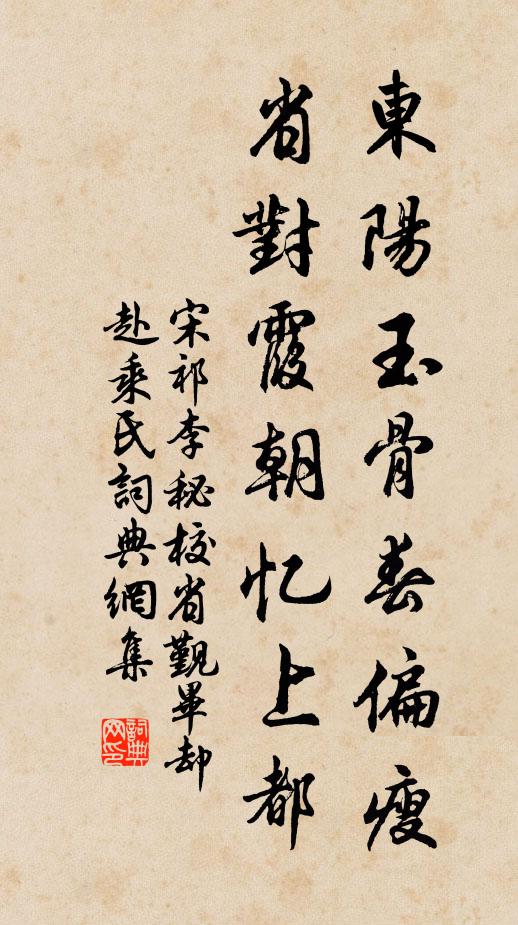 東陽玉骨春偏瘦
省對霞朝忆上都
宋祁李秘校省觀畢却
赴乘氏詞典網集
詞典网印